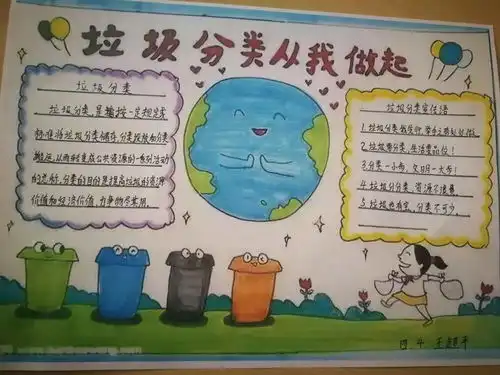 垃圾分类从我做起
垃圾分类
垃圾分类,是指按一定规定或
标准将垃圾分类储存、分类投放和分类
搬运,从而转变成公共资源的一系列活动
的总称,分类的目的是提高垃圾的资源
价值和经济价值,力争物尽其用。
垃圾分类宣传语
1.垃圾分类我先行
2.垃圾带分类,生活有品位!
3.分类一小步,文明一大步!
4.垃圾分分类,资源不浪费
5.垃圾也有家,分类不可少。
四、4